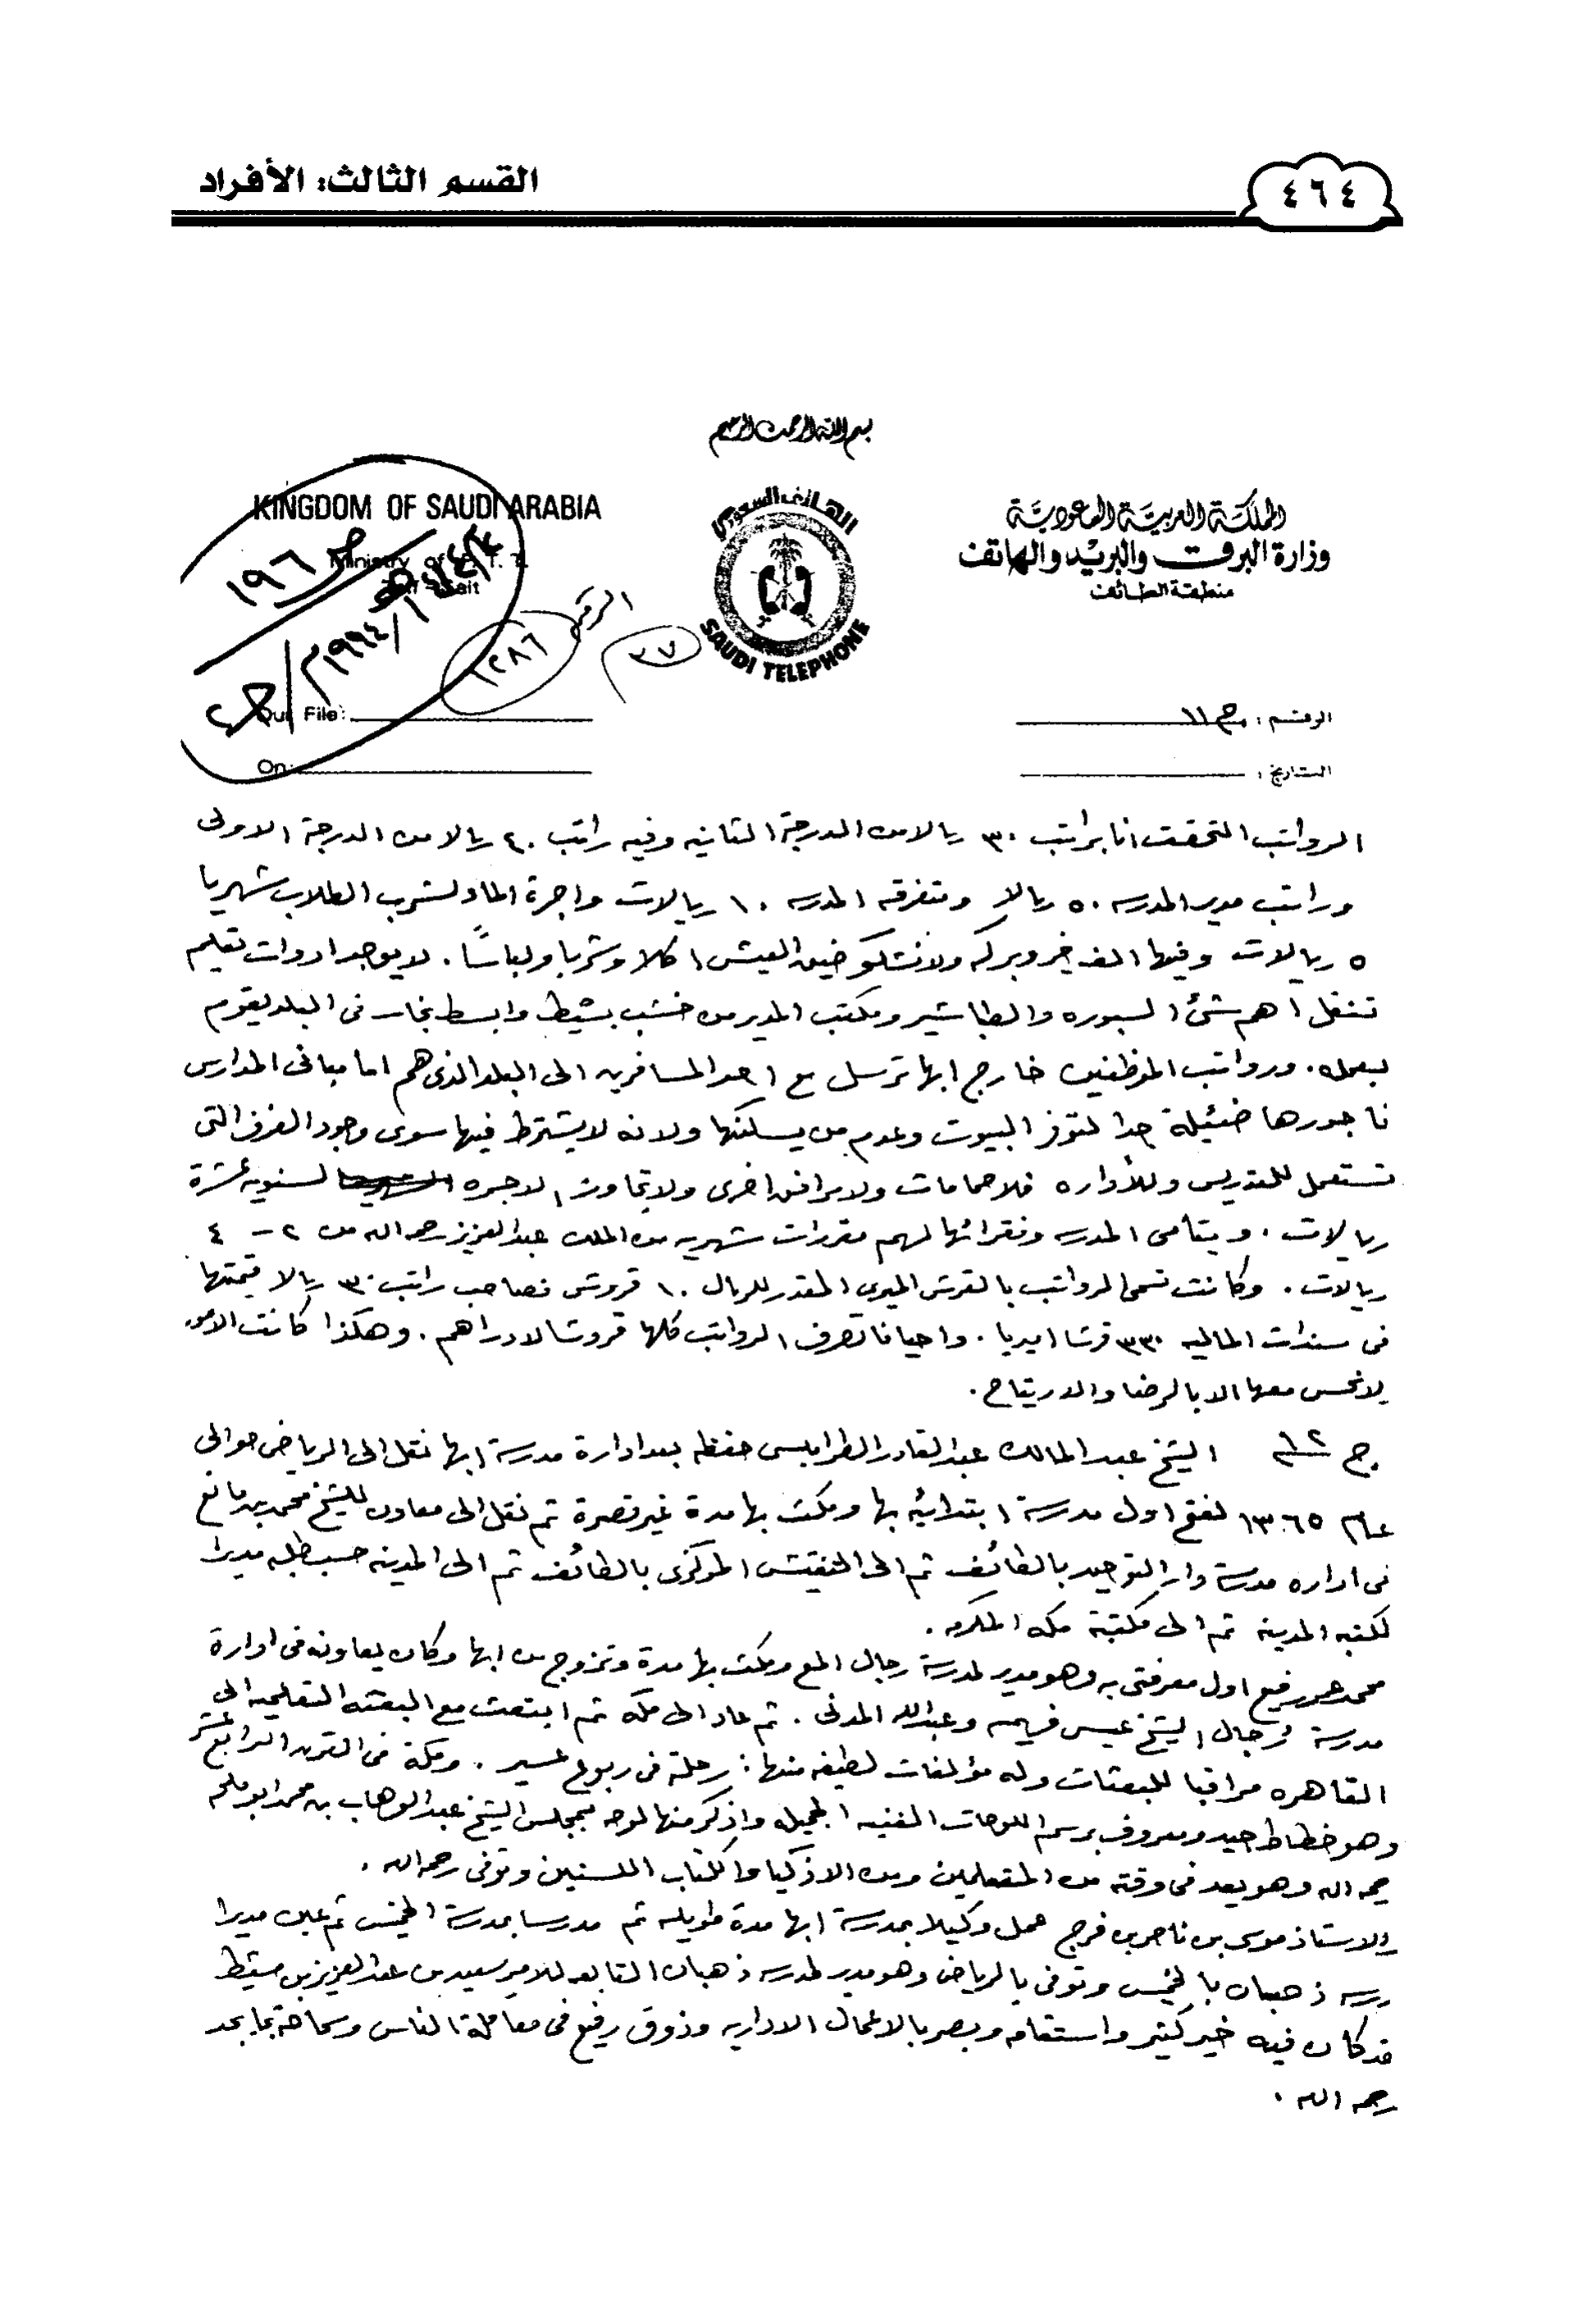 ٤٦٤
القسم الثالث: الأفراد
بسم الله الرحمن الرحيم
KINGDOM OF SAUDI ARABIA
Ministry of P. T. T.
ص ١٩٦
الهاتف السعودي
SAUDI TELEPHONE
المملكة العربية السعودية
وزارة البرق والبريد والهاتف
منطقة الطائف
الرقم
١٢٨٦
٣٧
Our File:
On:
الرقم : ج ١١
التاريخ :
الرواتب التحقت انا براتب ٣٠ ريالا من الدرجة الثانيه وفيه راتب ٤٠ ريالا من الدرجة الاولى
وراتب مدير المدرسه ٥٠ ريالا ومتفرقه المدرسه ١٠ ريالات واجرة الماء لشرب الطلاب شهريا
٥ ريالات وفيها الف خير وبركه ولا نشكو ضيق العيش اكلا وشربا ولباسًا . لا يوجد ادوات تعليم
تنقل اهم شئ السبوره والطباشير ومكتب المدير من خشب بسيط وابسط نجار في البلد يقوم
بعمله . ورواتب الموظفين خارج ابها ترسل مع احد المسافرين الى البلد الذي هم اما مباني المدارس
فاجورها ضئيلة جدا لتوفر البيوت وعدم من يسكنها ولانه لا يشترط فيها سوى وجود الغرف التي
تستعمل للتدريس وللأداره فلا حمامات ولا مرافق اخرى ولا يتجاوز الاجره السنويه عشرة
ريالات . ويتامى المدرسه وفقرائها لهم مقررات شهريه من الملك عبدالعزيز رحمه الله من ٢ - ٤
ريالات . وكانت تسمى الرواتب بالقرش الميري المقدر للريال ١٠ قروش فصاحب راتب ٣٠ ريالا قيمتها
في سندات الماليه ٣٣٠ قرشا اميريا . واحيانا تصرف الرواتب كلها قروشا لا دراهم . وهكذا كانت الامور
لا نحس معها الا بالرضا والارتياح .
ج ١٢ الشيخ عبد المالك عبدالقادر الطرابلسي حفظه بعد ادارة مدرسة ابها نقل الى الرياض حوالي
عام ١٣٦٥ لفتح اول مدرسة ابتدائيه بها ومكث بها مدة غير قصرة ثم نقل الى معاون للشيخ محمد بن مانع
في اداره مدرسة دار التوحيد بالطائف ثم الى التفتيش المركزى بالطائف ثم الى المدينه حسب طلبه مديرا
لمكتبه المدينه ثم الى مكتبة مكه المكرمه .
محمد عمر رفيع اول معرفتي به وهو مدير لمدرسة رجال المع ومكث بها مدة وتزوج من ابها وكان يعاونه في ادارة
مدرسة رجال الشيخ عيسى فهيم وعبدالله المدني . ثم عاد الى مكه ثم ابتعث مع البعثه التعليميه الى
القاهره مراقبا للبعثات وله مؤلفات لطيفه منها : رحلة في ربوع عسير . ومكة في القرن الرابع عشر
وهو خطاط جيد ومعروف برسم اللوحات الفنيه الجميله واذكر منها لوحه بمجلس الشيخ عبدالوهاب بن محمد ابو ملحه
رحمه الله وهو يعد في وقته من المتعلمين ومن الاذكيا والكتاب اللسنين وتوفى رحمه الله .
والاستاذ موسى بن ناصر بن فرج عمل وكيلا بمدرسة ابها مدة طويله ثم مدرسا بمدرسة الخميس ثم عين مديرا
درسه ذهبان بالخميس وتوفى بالرياض وهو مدير لمدرسه ذهبان التابعه للامير سعيد بن عبدالعزيز بن مشيط
قد كان فيه خير كثير واستقامه وبصر بالاعمال الاداريه وذوق رفيع في معاملة الناس وسماحة
رحمه الله .